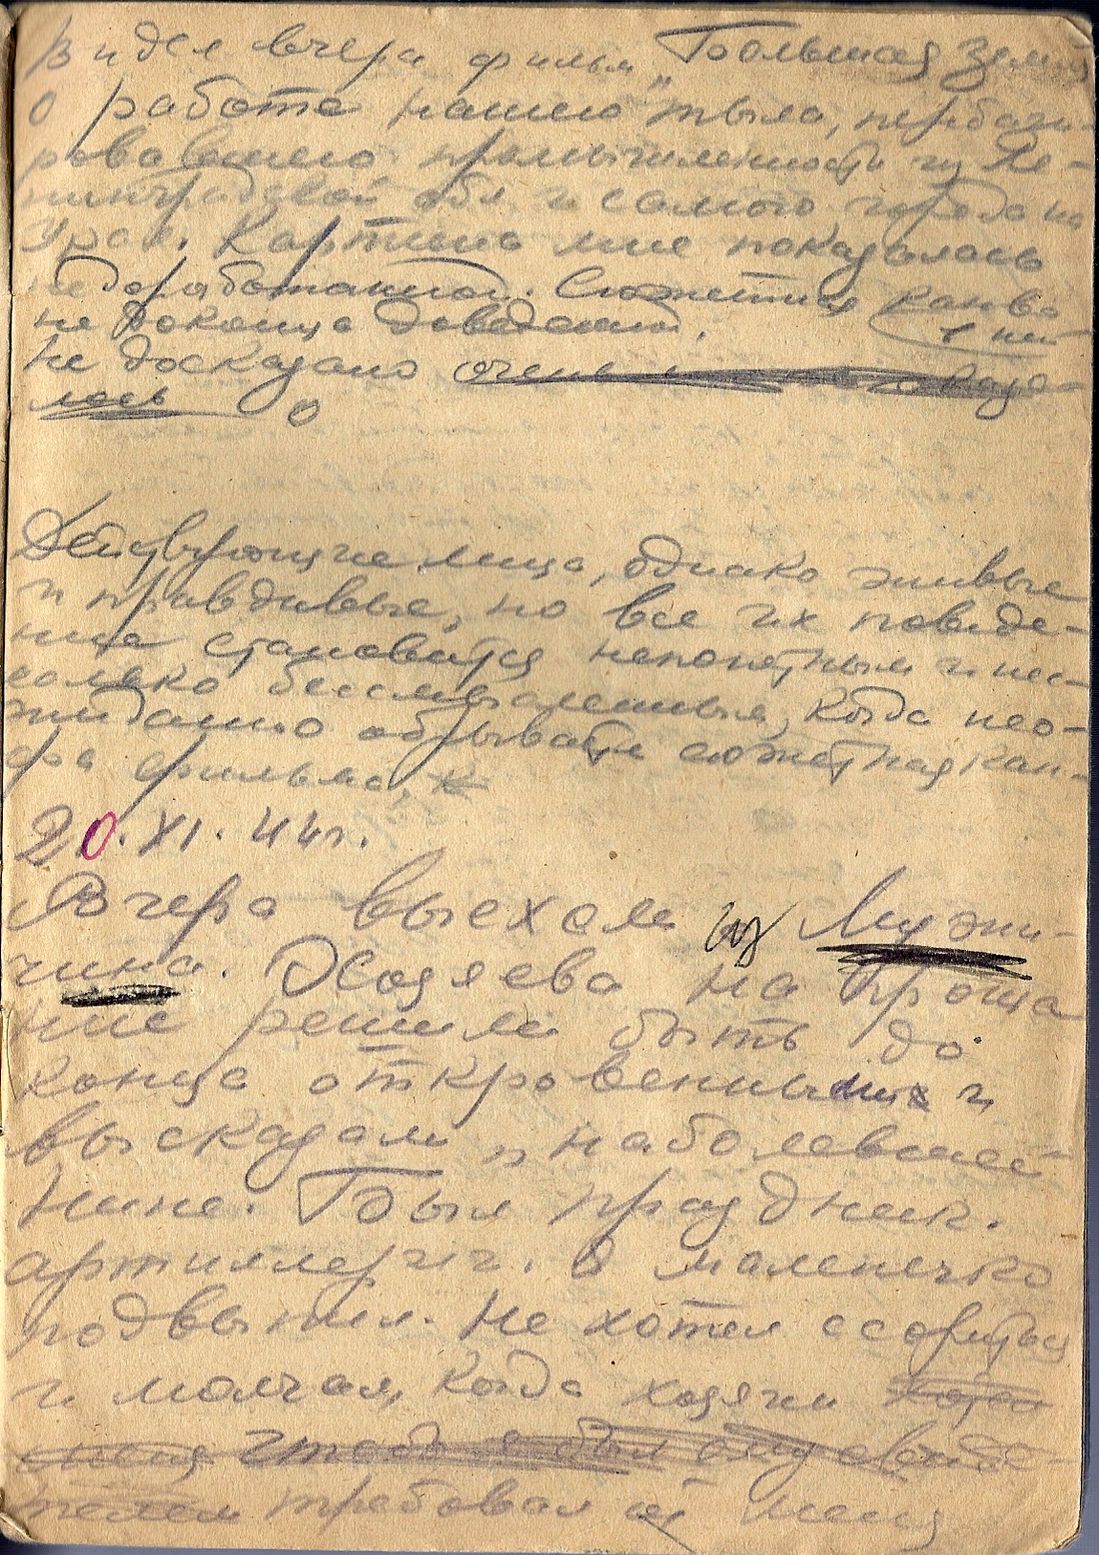 Видел вчера фильм „Большая Земля
О работе нашего тыла, перебази-
ровавшего промышленности из Ле-
нинградской обл. и самого города на
Урал. Картина мне показалась
недоработанной. Сюжетная канва
не доконца доведена, в ней
не досказано очень
лось о
Действующие лица, однако живые
и правдивые, но все их поведе-
ние становится непонятным и нес-
колько бессмысленным, когда нео-
жиданно обрывается сюжетная кан-
ва фильма,
20.XI.44г.
Вчера выехали из Мужи-
чина. Хозяева на проща
ние решили быть до
конца откровенными и
высказали „наболевшее"
Нине. Был праздник.
артиллерии. Я маленечко
подвыпил. Не хотел ссориться
и молчал, когда хозяин хотел
чтобы я был ему свиде-
телем требовал от меня